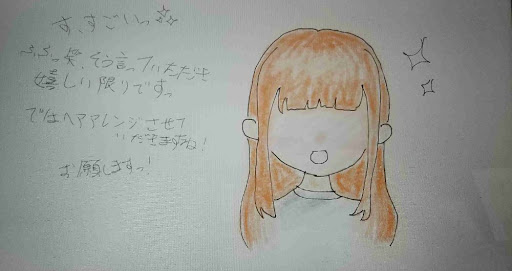 す、すごいっ
ふふっ葵、そう言っていただき
嬉しい限りですっ
ではヘアアレンジさせて
いただきますね!
お願しますっ!